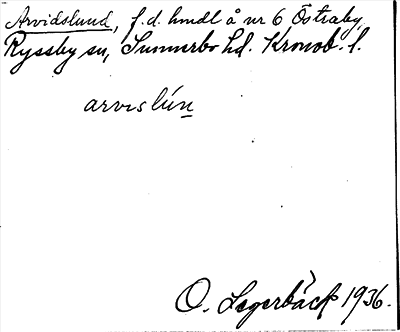 Arvidslund, f.d. hmdl å nr 6 Östraby,
Ryssby sn, Sunnerbo hd. Kronob. l.
arvislún
O. Lagerbäck 1936.